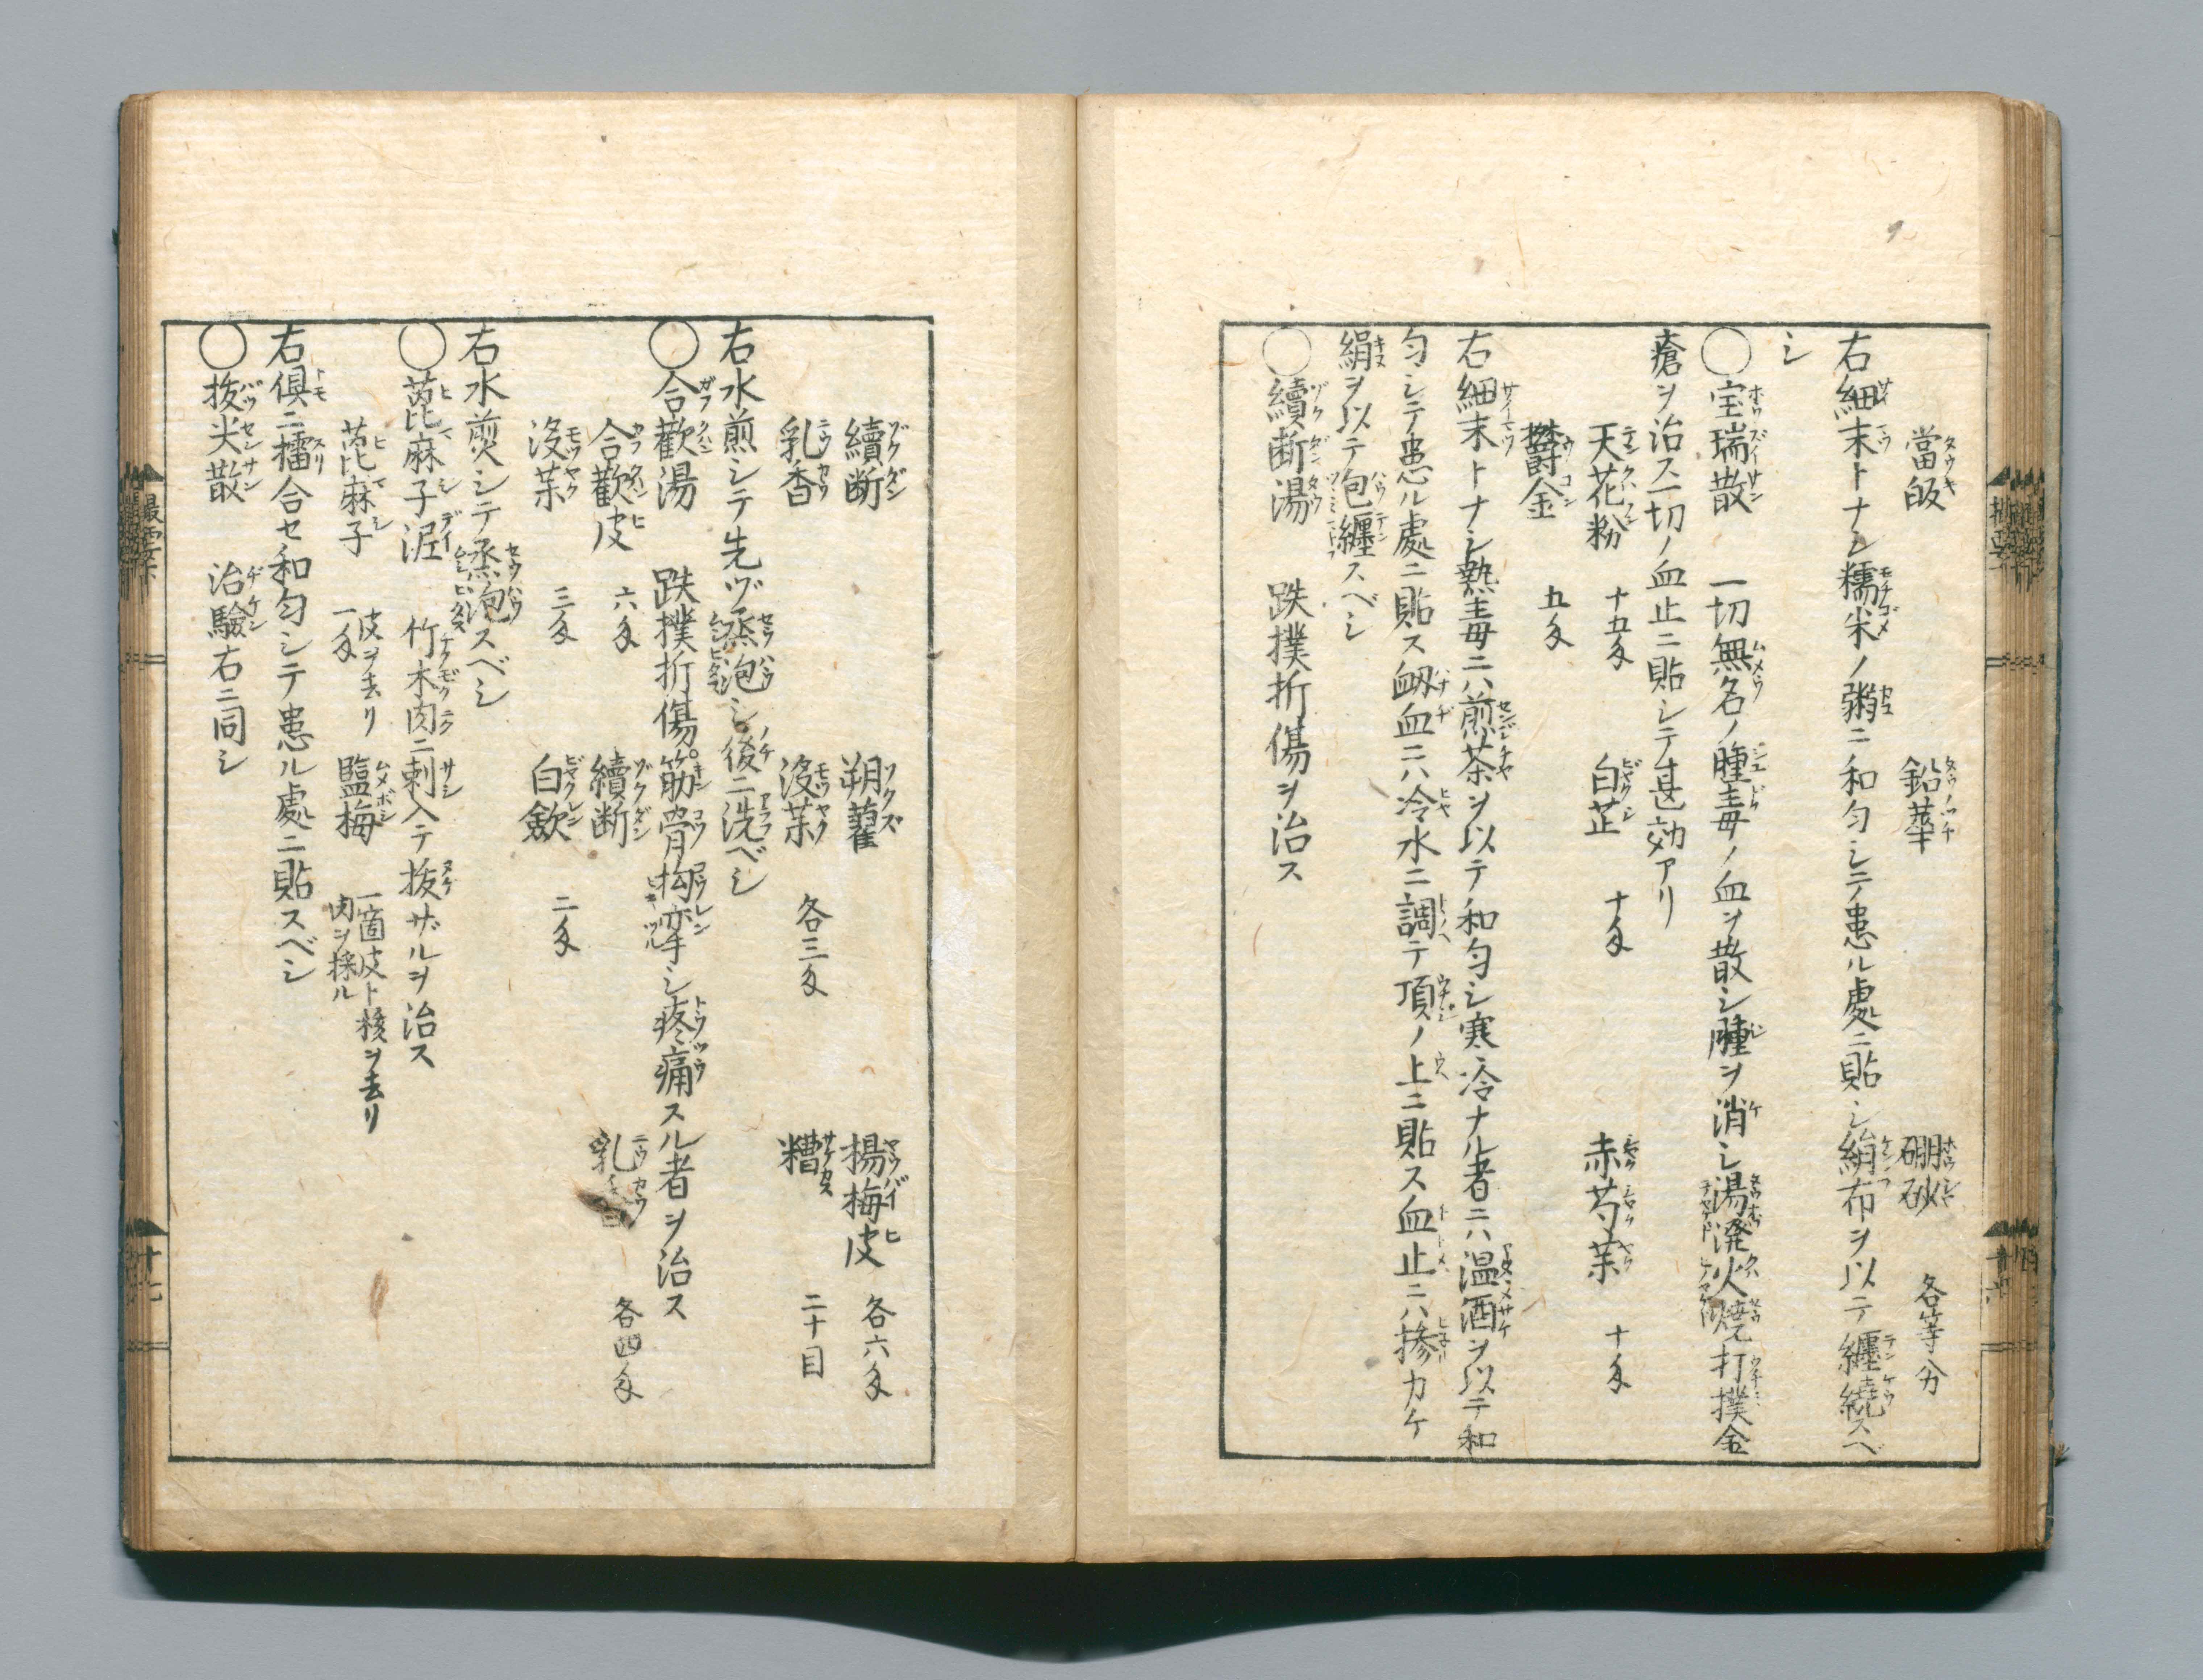 當皈 鉛華 硼砂 各等分
右細末トナシ糯米ノ粥ニ和匀シテ患ル處ニ貼シ絹布ヲ以テ纏繞スベ
シ
○宝瑞散 一切無名ノ腫毒ノ血ヲ散シ腫ヲ消シ湯溌火焼打撲金
瘡ヲ治ス一切ノ血止ニ貼シテ甚効アリ
天花粉 十五匁 白芷 十匁 赤芍薬 十匁
欝金 五匁
右細末トナシ熱毒ニハ煎茶ヲ以テ和匀シ寒冷ナル者ニハ温酒ヲ以テ和
匀シテ患ル處ニ貼ス衂血ニハ冷水ニ調テ頂ノ上ニ貼ス血止ニハ摻カケ
絹ヲ以テ包纏スベシ
○續断湯 跌撲折傷ヲ治ス
續断 朔藋 楊梅皮 各六匁
乳香 沒薬 各三匁 糟 二十目
右水煎シテ先ヅ蒸泡シ後ニ洗ベシ
○合歡湯 跌撲折傷筋骨拘攣シ疼痛スル者ヲ治ス
合歡皮 六匁 續断 乳香 各四匁
沒薬 三匁 白歛 二匁
右水煎シテ蒸泡スベシ
○萞麻子泥 竹木肉ニ刺入テ抜ザルヲ治ス
萞麻子 皮ヲ去リ一匁 塩梅 一箇皮ト核ヲ去リ肉ヲ採ル
右倶ニ擂合セ和匀シテ患ル處ニ貼スベシ
○抜尖散 治驗右ニ同シ
十七